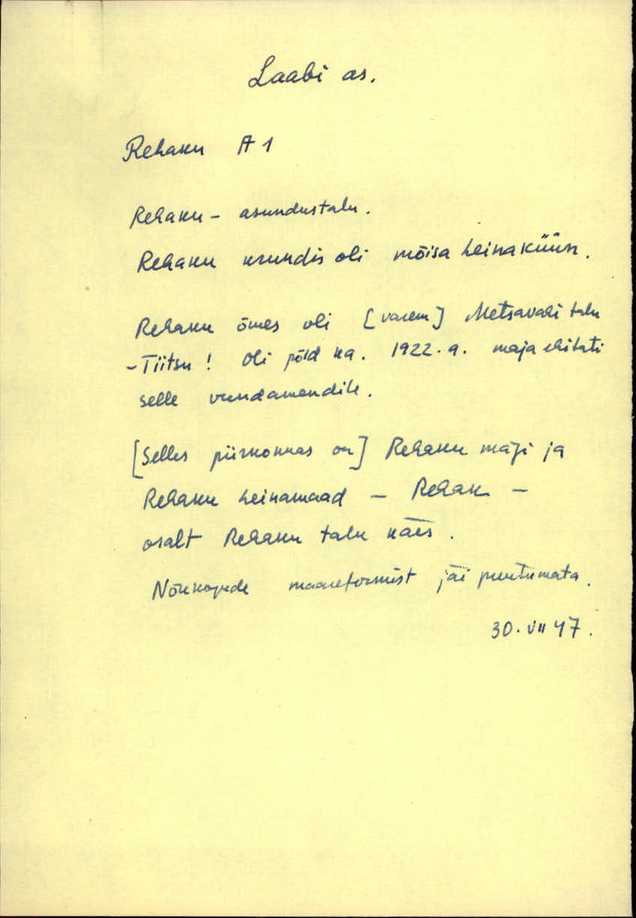 Laabi as.
Rehaku A 1
Rehaku - asundustalu.
Rehaku krundis oli mõisa heinaküün.
Rehaku õues oli [varem] Metsavahi talu
- Tiitsu! Oli põld ka. 1922. a. maja ehitati
selle vundamendile.
[Selles piirkonnas on] Rehaku mägi ja
Rehaku heinamaad - Rehak -
osalt Rehaku talu käes.
maareformist jäi puutumata.
30. VII 47.